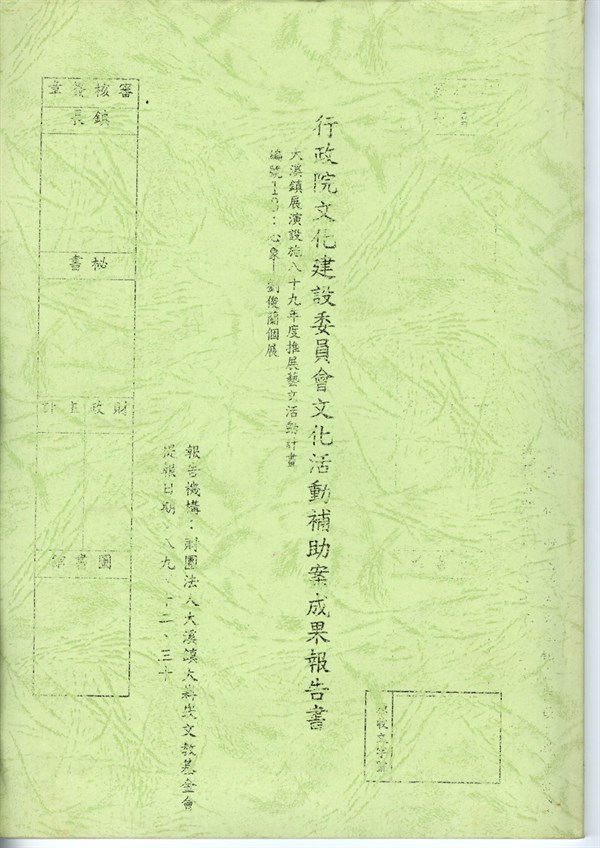 行政院文化建設委員會文化活動補助案成果報告書
大溪鎮展演設施八十九年度推展藝文活動計畫
編號：心象－劉俊蘭個展
報告機構：財團法人大溪鎮大嵙崁文教基金會
提報日期 八九、十二、三十
審核簽章
鎮長
秘書
財政 主計
圖書館